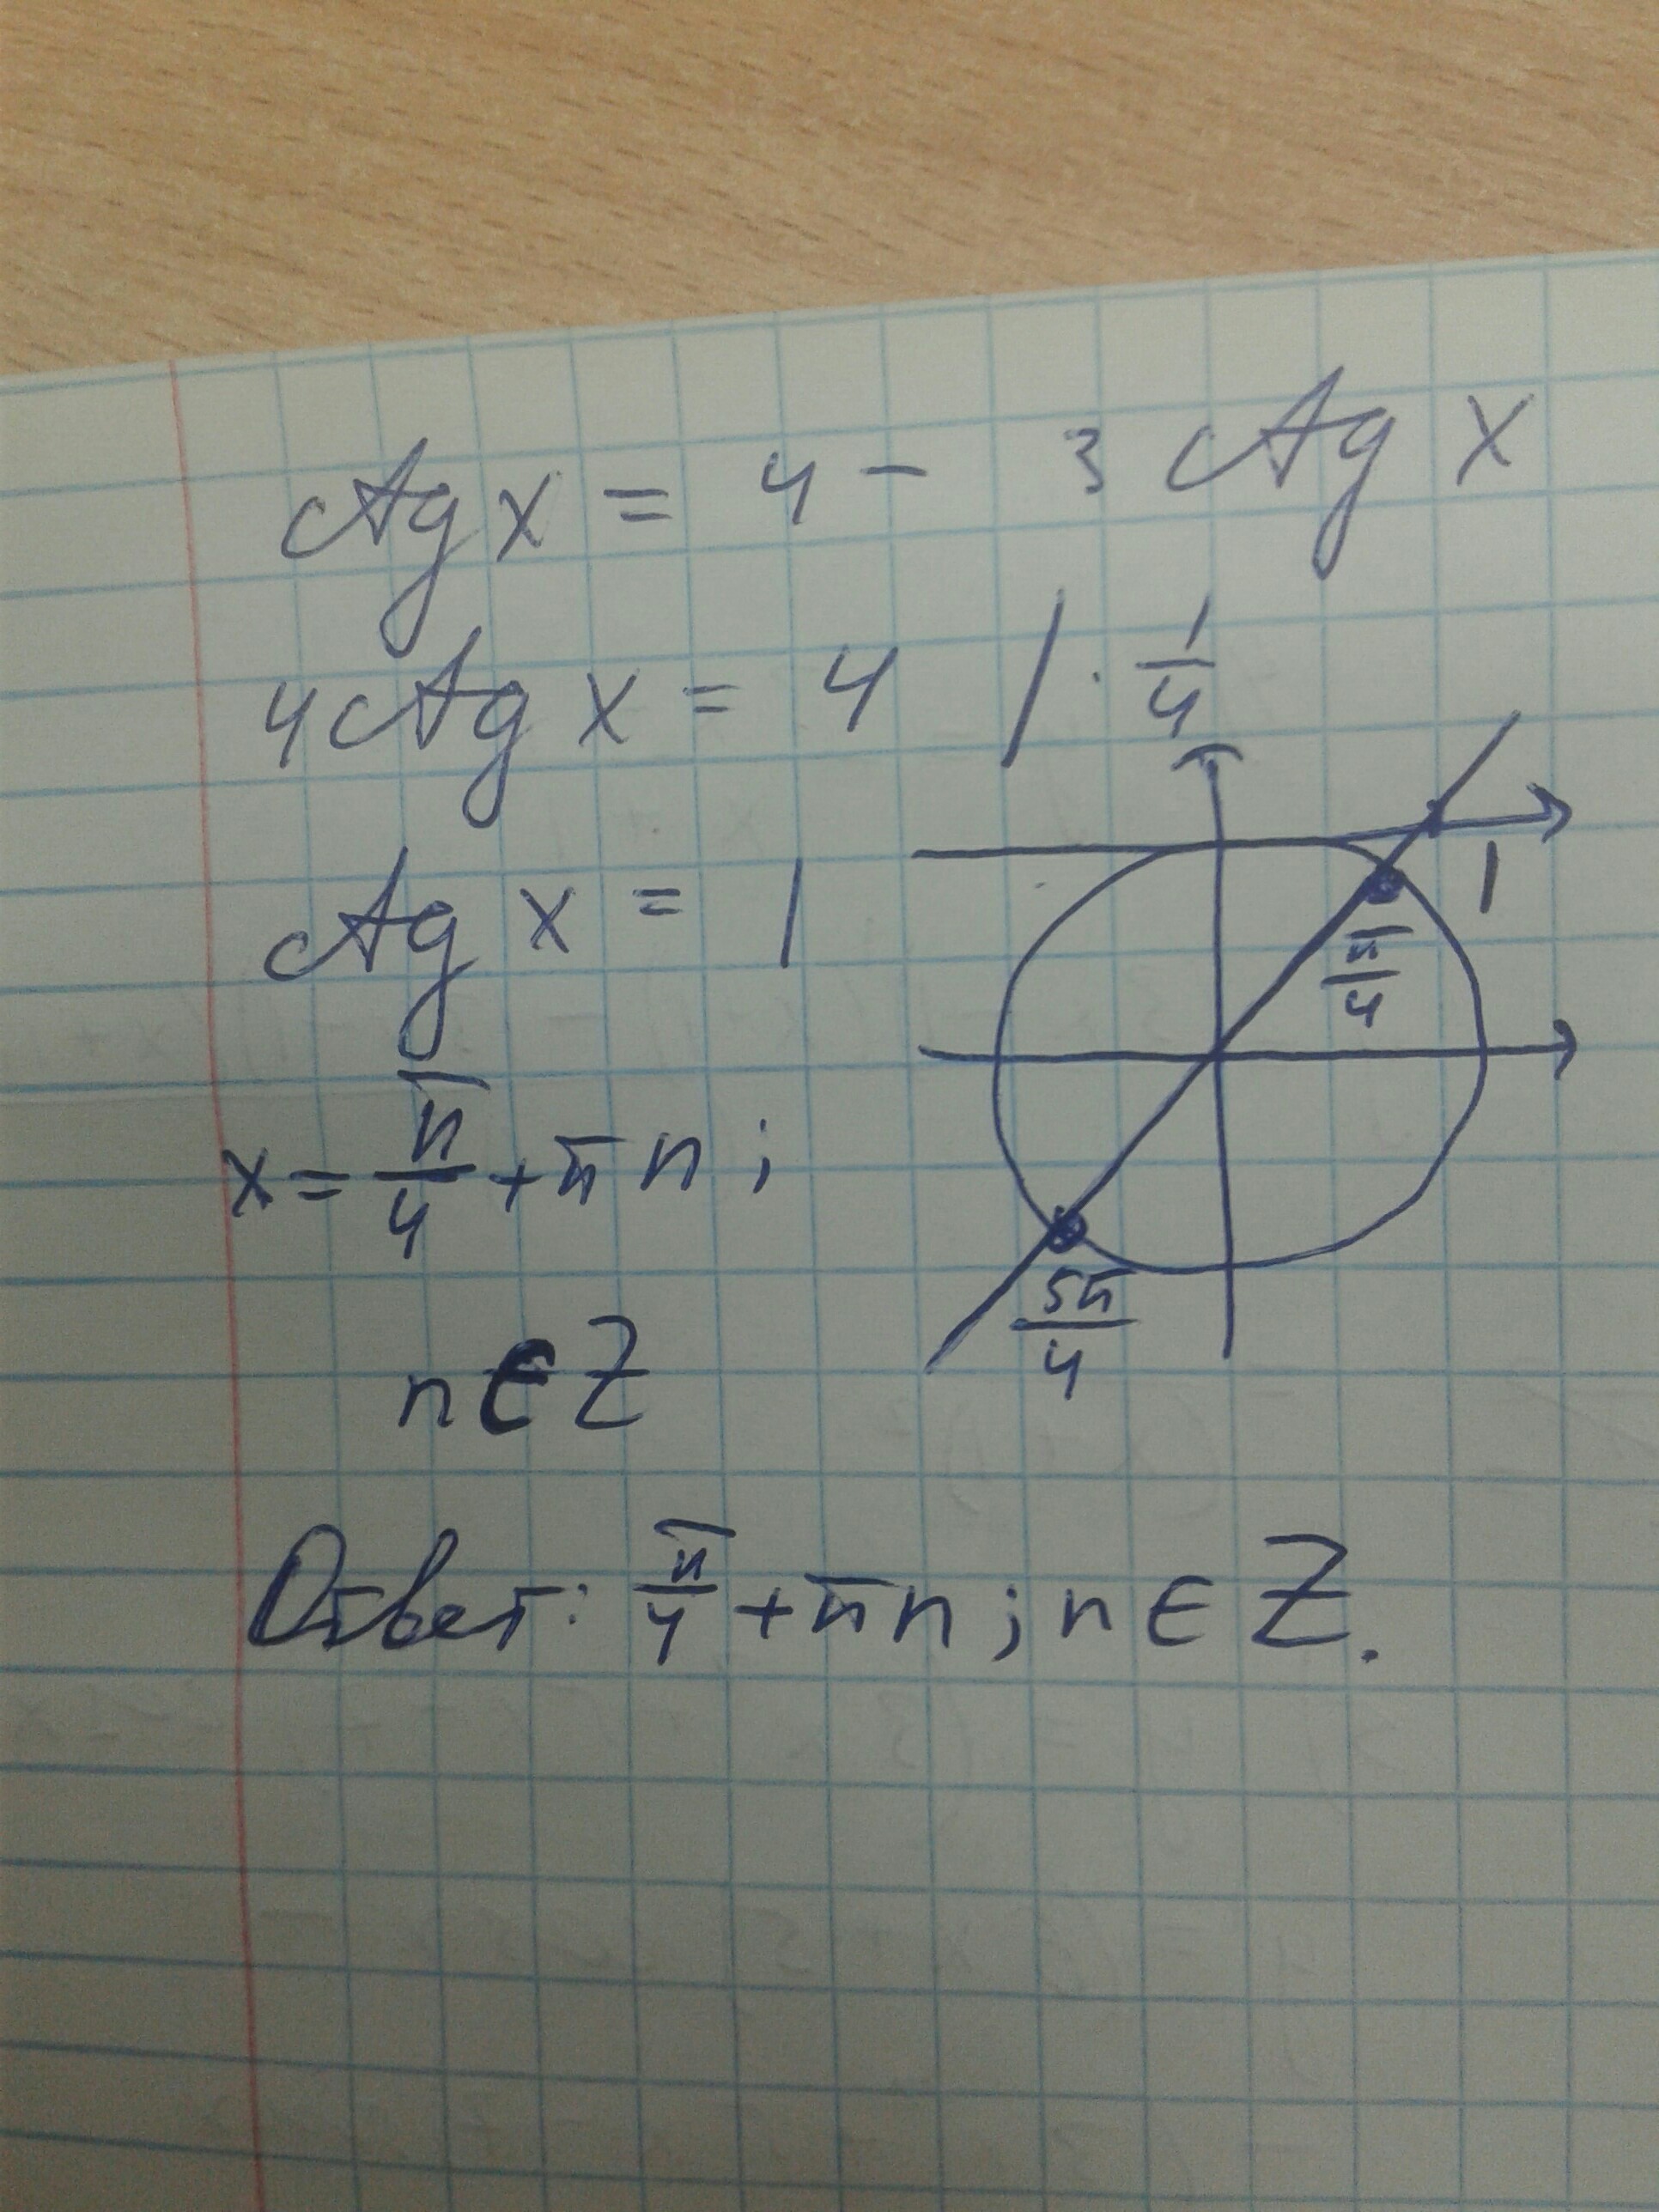 ctg x = 4 - 3 ctg x
4 ctg x = 4 | · 1/4
ctg x = 1
x = π/4 + πn;
n ∈ Z
1
π/4
5π/4
Ответ: π/4 + πn; n ∈ Z.